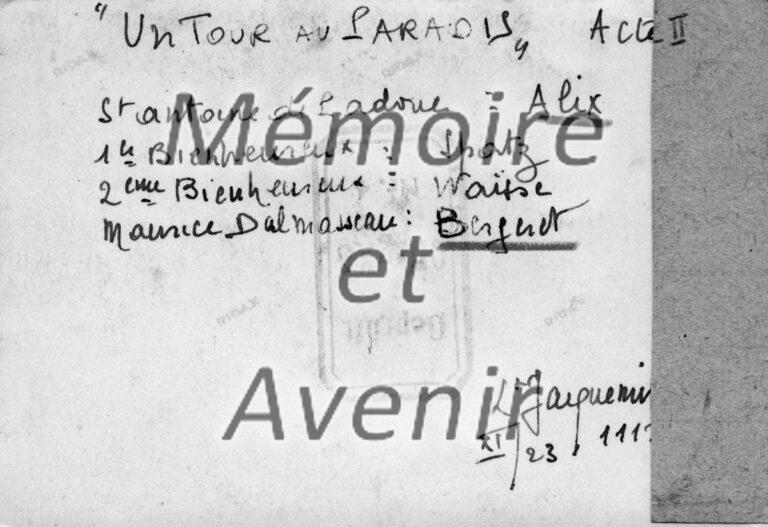 "UN TOUR AU PARADIS" Acte II
St antoine de Padoue = Alix
1er Bienheureux : Spatz
2ème Bienheureux = Waisse
Maurice Dalmasseau : Bergeret
Mémoire
et
Avenir
Jacquemin
XI / 23, 111